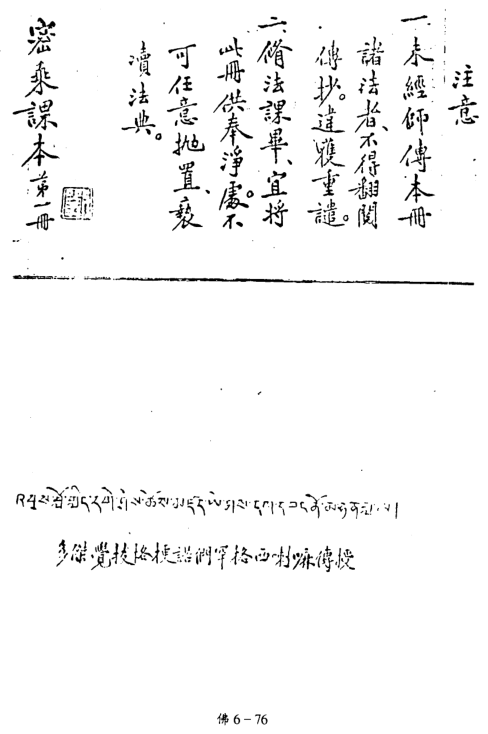 注意
一、未經師傳本冊
諸法者、不得翻閱
傳抄。違獲重譴。
二、脩法課畢、宜將
此冊供奉淨處。不
可任意拋置、褻
瀆法典。
密乘課本第一冊
多傑覺拔格梗諾們罕格西喇嘛傳授
佛 6－76